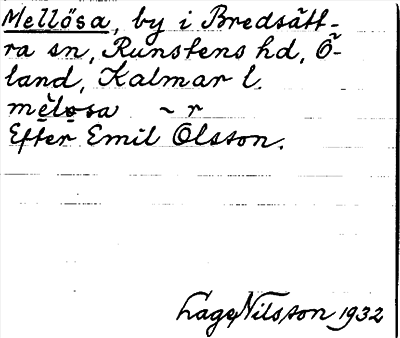 Mellösa, by i Bredsätt-
ra sn, Runstens hd, Ö-
land, Kalmar l.
mèlosa ~ r
Efter Emil Olsson.
Lage Nilsson 1932